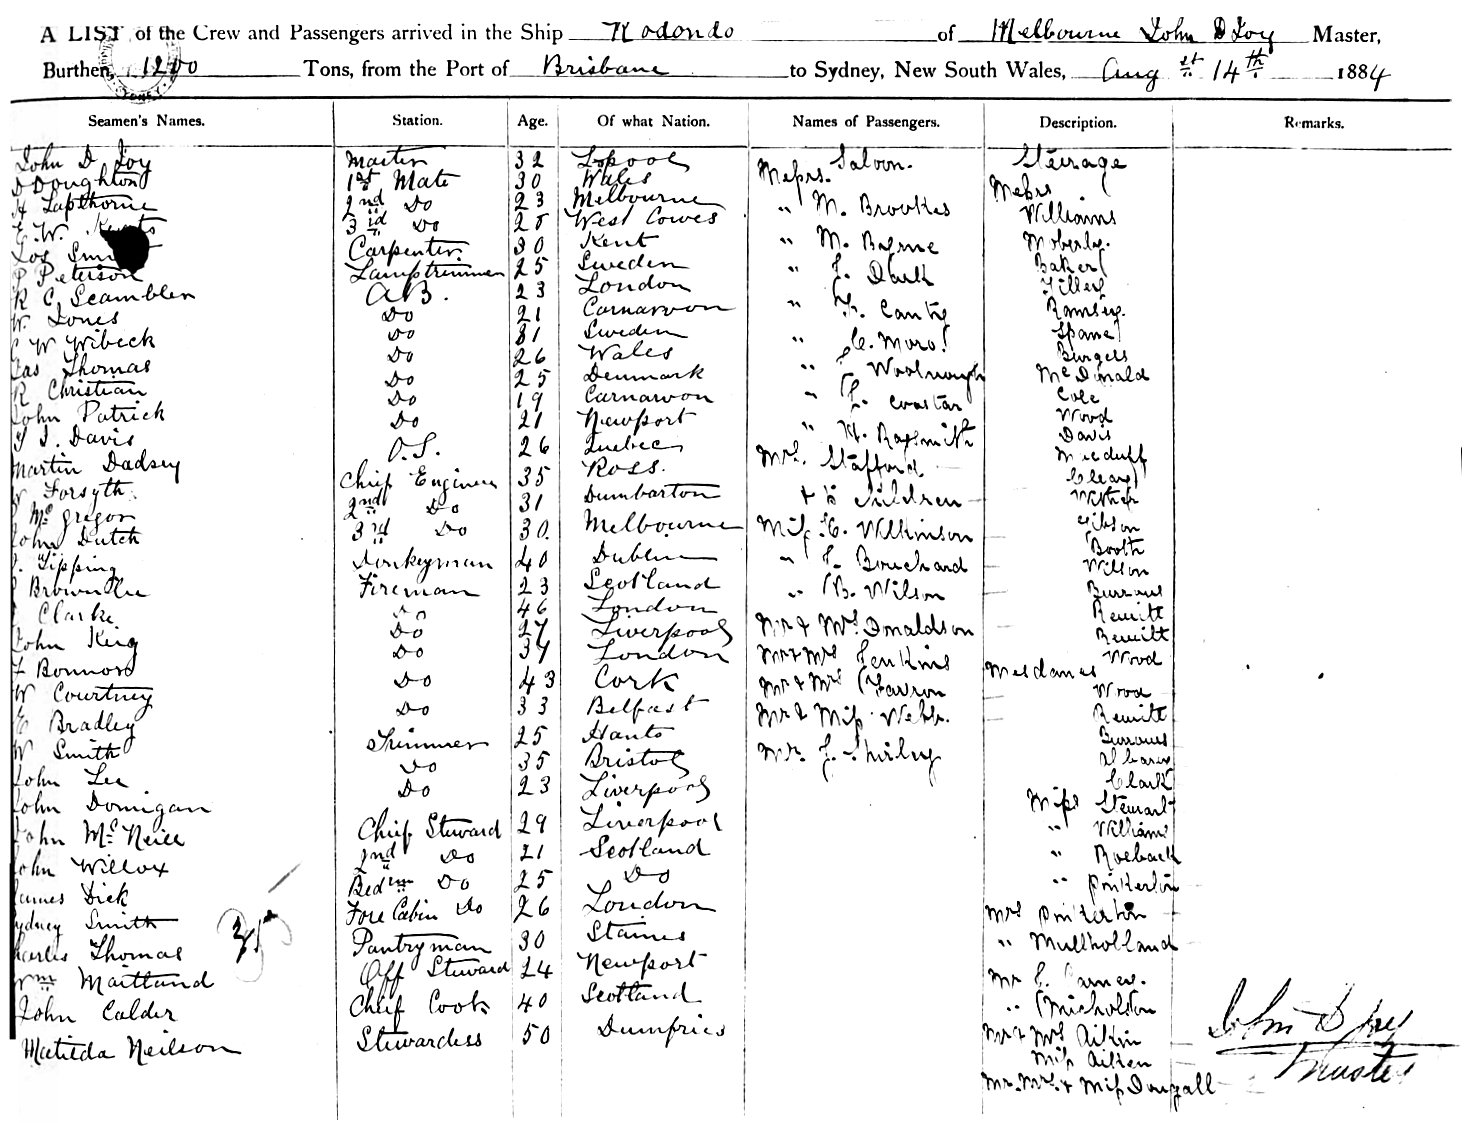 A LIST of the Crew and Passengers arrived in the Ship Rodondo of Melbourne John D Joy Master,
Burthen 1200 Tons, from the Port of Brisbane to Sydney, New South Wales, Aug st 14th 1884
Seamen's Names. Station. Age. Of what Nation. Names of Passengers. Description. Remarks.
John D Joy Master 32 L.pool Saloon. Steerage
D Doughton 1st Mate 30 Wales Messrs. Messrs
H Lapthorne 2nd Do 23 Melbourne " M. Brookes Williams
E. W. 3rd Do 28 West Cowes " M. Byrne Moberly.
Jos Carpenter. 30 Kent " J. Dark Baker
P Peterson Lamptrimmer 25 Sweden " Canty
R C. Scambler A.B. 23 London " C. Moro. Ramsey.
W. Jones Do 21 Carnarvon " Woolnough Spane
C W Wibeck Do 31 Sweden " J. Coastar Burgess
Jas Thomas Do 26 Wales " H. Raysmith McDonald
R Christian Do 25 Denmark Mrs. Stafford Cole
John Patrick Do 19 Carnarvon + children Wood
T J. Davis Do 21 Newport Miss C. Wilkinson Davis
Martin Dadsey O.S. 26 Quebec " J. Bouchard Macduff
W Forsyth Chief Engineer 35 Ross. " B. Wilson Cleary
McGregor 2nd Do 31 Dumbarton Mr & Mrs Donaldson
John Dutch 3rd Do 30. Melbourne Mr & Mrs Jenkins Gibson
J. Tipping Donkeyman 40 Dublin Mr & Mrs Booth
Brownlie Fireman 23 Scotland Mr & Miss Webb. Wilson
Clarke Do 46 London Mr. J. Shirley Burrows
John King Do 27 Liverpool Rewitt
F Bonnord Do 37 London Rewitt
W Courtney Do 43 Cork Wood
E Bradley Do 33 Belfast Mesdames Wood
W Smith Trimmer 25 Hants Rewitt
John Lee Do 35 Bristol Burrows
John Donigan Do 23 Liverpool Clark
John McNeill Chief Steward 29 Liverpool Miss Stewart
John Willox 2nd Do 21 Scotland " Williams
James Dick Bedrm Do 25 Do " Roeback
Sydney Smith Fore Cabin Do 26 London " Pinkerton
Charles Thomas 35 Pantryman 30 Staines Mrs Pinkerton
Wm Maitland Aff Steward 24 Newport " Mullholland
John Calder Chief Cook 40 Scotland Mr E.
Matilda Neilson Stewardess 50 Dumfries " Nicholson
Mr & Mrs Aitkin
Miss Aitken
Mr. Mrs. & Miss Dougall
John D Joy
Master